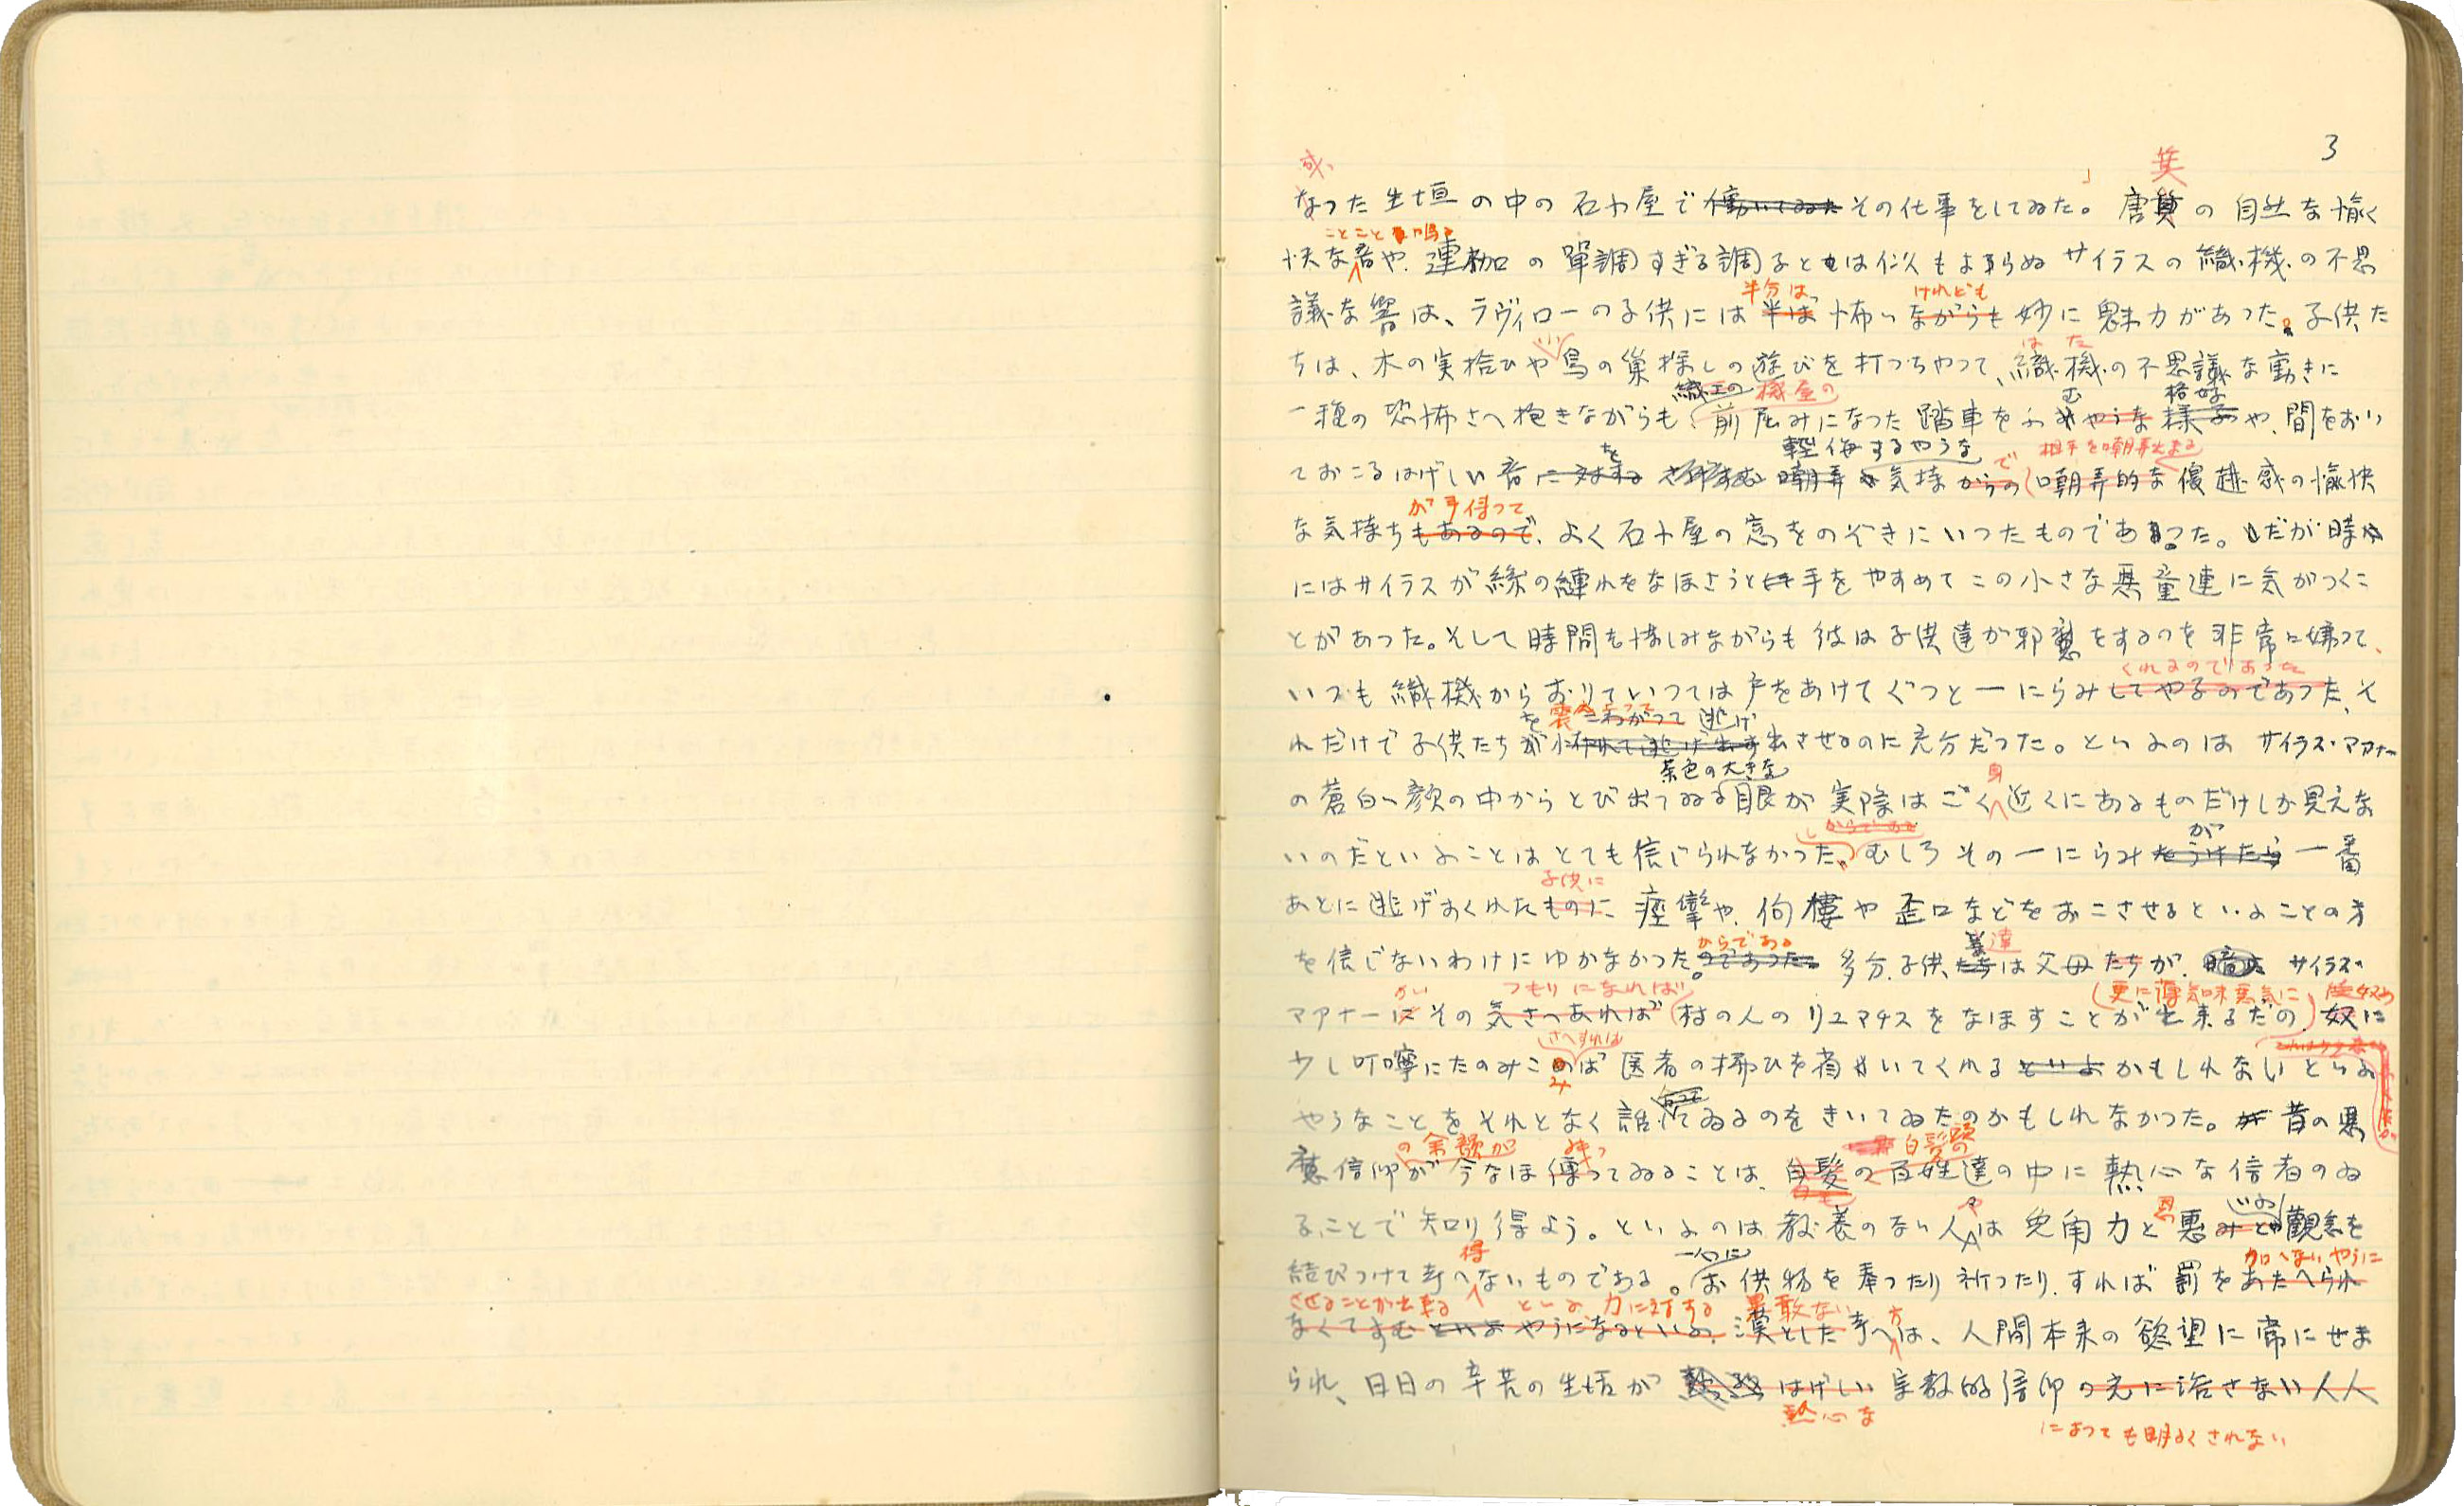 3
なつた生垣の中の石小屋で働いてゐたその仕事をしてゐた。唐箕の自然な愉
ことこと鳴る
快な音や、連枷の單調すぎる調子とは似もよらぬサイラスの織機の不思
半分は けれども
議な響は、ラヴィローの子供には半ば怖いながらも妙に魅力があつた。子供た
はた
ちは、木の実拾ひや鳥の巣探しの遊びを打つちやつて、織機の不思議な動きに
織工の 機屋の む 格好
一種の恐怖さへ抱きながらも、前屈みになつた踏車をふむやうな様子や、間をおい
を 軽侮するやうな で 相手を嘲弄出来る
ておこるはげしい音に対する 嘲弄 気持からの嘲弄的な優越感の愉快
が手伝つて
な気持ちもあるので、よく石小屋の窓をのぞきにいつたものであつた。だが時々
にはサイラスが絲の縺れをなほさうと手をやすめてこの小さな悪童連に気がつくこ
とがあつた。そして時間を惜しみながらも彼は子供達が邪魔をするのを非常に嫌つて、
くれるのであつた
いつも織機からおりていつては戸をあけてぐつと一にらみしてやるのであつた、そ
を こわがつて逃げ
れだけで子供たちが怖れて逃げ出す出させるのに充分だつた。といふのはサイラス・マアナー
茶色の大きな 身
の蒼白い顔の中からとび出てゐる眼が実際はごく近くにあるものだけしか見えな
からである が
いのだといふことはとても信じられなかつた。むしろその一にらみをうけたら一番
子供に
あとに逃げおくれたものに痙攣や、佝僂や歪口などをおこさせるといふことの方
からである 達
を信じないわけにゆかなかつた。のであつた。多分、子供たちは父母たちが、サイラス・
かい つもりになれば 更に薄気味悪気に
マアナーはその気さへあれば村の人のリユマチスをなほすことが出来るだの、奴に
さへすれば
少し叮嚀にたのみこめば医者の拂ひを省いてくれるといふかもしれないといふ
やうなことをそれとなく話してゐるのをきいてゐたのかもしれなかつた。昔の悪
の余韻が 白髪頭の
魔信仰が今なほ傳つてゐることは、白髪の百姓達の中に熱心な信者のゐ
や 恩
ることで知り得よう。といふのは教養のない人は兎角力と恵みとの觀念を
得 一心に 加へないやうに
結びつけて考へないものである。お供物を奉つたり祈つたりすれば罰をあたへられ
させることが出来る といふ力に対する 果敢ない 方
なくてすむといふやうになるといふ、漠とした考へは、人間本来の慾望に常にせま
られ、日日の辛苦の生活が はげしい宗教的信仰の光に活さない人人
熱心な
によつても明るくされない